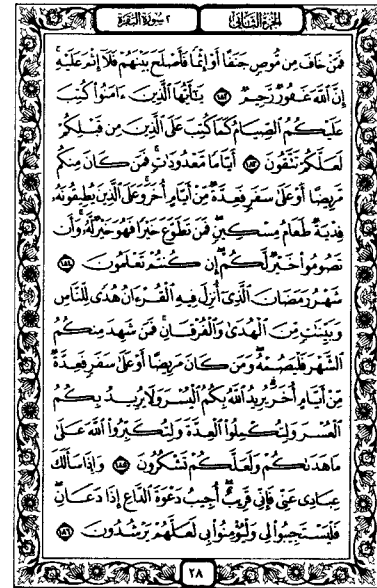 الجزء الثاني
٢ سورة البقرة
فَمَنْ خَافَ مِن مُّوصٍ جَنَفًا أَوْ إِثْمًا فَأَصْلَحَ بَيْنَهُمْ فَلَآ إِثْمَ عَلَيْهِ
إِنَّ ٱللَّهَ غَفُورٌ رَّحِيمٌ ۝١٨٢ يَٰٓأَيُّهَا ٱلَّذِينَ ءَامَنُوا۟ كُتِبَ
عَلَيْكُمُ ٱلصِّيَامُ كَمَا كُتِبَ عَلَى ٱلَّذِينَ مِن قَبْلِكُمْ
لَعَلَّكُمْ تَتَّقُونَ ۝١٨٣ أَيَّامًا مَّعْدُودَٰتٍ فَمَن كَانَ مِنكُم
مَّرِيضًا أَوْ عَلَىٰ سَفَرٍ فَعِدَّةٌ مِّنْ أَيَّامٍ أُخَرَ وَعَلَى ٱلَّذِينَ يُطِيقُونَهُۥ
فِدْيَةٌ طَعَامُ مِسْكِينٍ فَمَن تَطَوَّعَ خَيْرًا فَهُوَ خَيْرٌ لَّهُۥ وَأَن
تَصُومُوا۟ خَيْرٌ لَّكُمْ إِن كُنتُمْ تَعْلَمُونَ ۝١٨٤
شَهْرُ رَمَضَانَ ٱلَّذِىٓ أُنزِلَ فِيهِ ٱلْقُرْءَانُ هُدًى لِّلنَّاسِ
وَبَيِّنَٰتٍ مِّنَ ٱلْهُدَىٰ وَٱلْفُرْقَانِ فَمَن شَهِدَ مِنكُمُ
ٱلشَّهْرَ فَلْيَصُمْهُ وَمَن كَانَ مَرِيضًا أَوْ عَلَىٰ سَفَرٍ فَعِدَّةٌ
مِّنْ أَيَّامٍ أُخَرَ يُرِيدُ ٱللَّهُ بِكُمُ ٱلْيُسْرَ وَلَا يُرِيدُ بِكُمُ
ٱلْعُسْرَ وَلِتُكْمِلُوا۟ ٱلْعِدَّةَ وَلِتُكَبِّرُوا۟ ٱللَّهَ عَلَىٰ
مَا هَدَىٰكُمْ وَلَعَلَّكُمْ تَشْكُرُونَ ۝١٨٥ وَإِذَا سَأَلَكَ
عِبَادِى عَنِّى فَإِنِّى قَرِيبٌ أُجِيبُ دَعْوَةَ ٱلدَّاعِ إِذَا دَعَانِ
فَلْيَسْتَجِيبُوا۟ لِى وَلْيُؤْمِنُوا۟ بِى لَعَلَّهُمْ يَرْشُدُونَ ۝١٨٦
٢٨